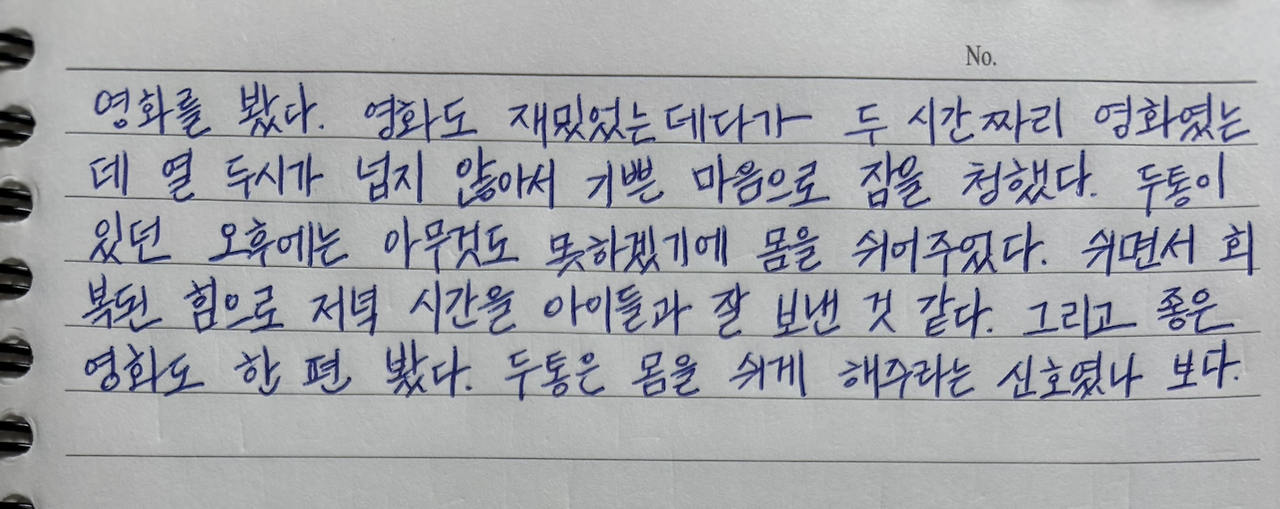 No.
영화를 봤다. 영화도 재밌었는데다가 두 시간 짜리 영화였는
데 열 두시가 넘지 않아서 기쁜 마음으로 잠을 청했다. 두통이
있던 오후에는 아무것도 못하겠기에 몸을 쉬어주었다. 쉬면서 회
복된 힘으로 저녁 시간을 아이들과 잘 보낸 것 같다. 그리고 좋은
영화도 한 편 봤다. 두통은 몸을 쉬게 해주라는 신호였나 보다.